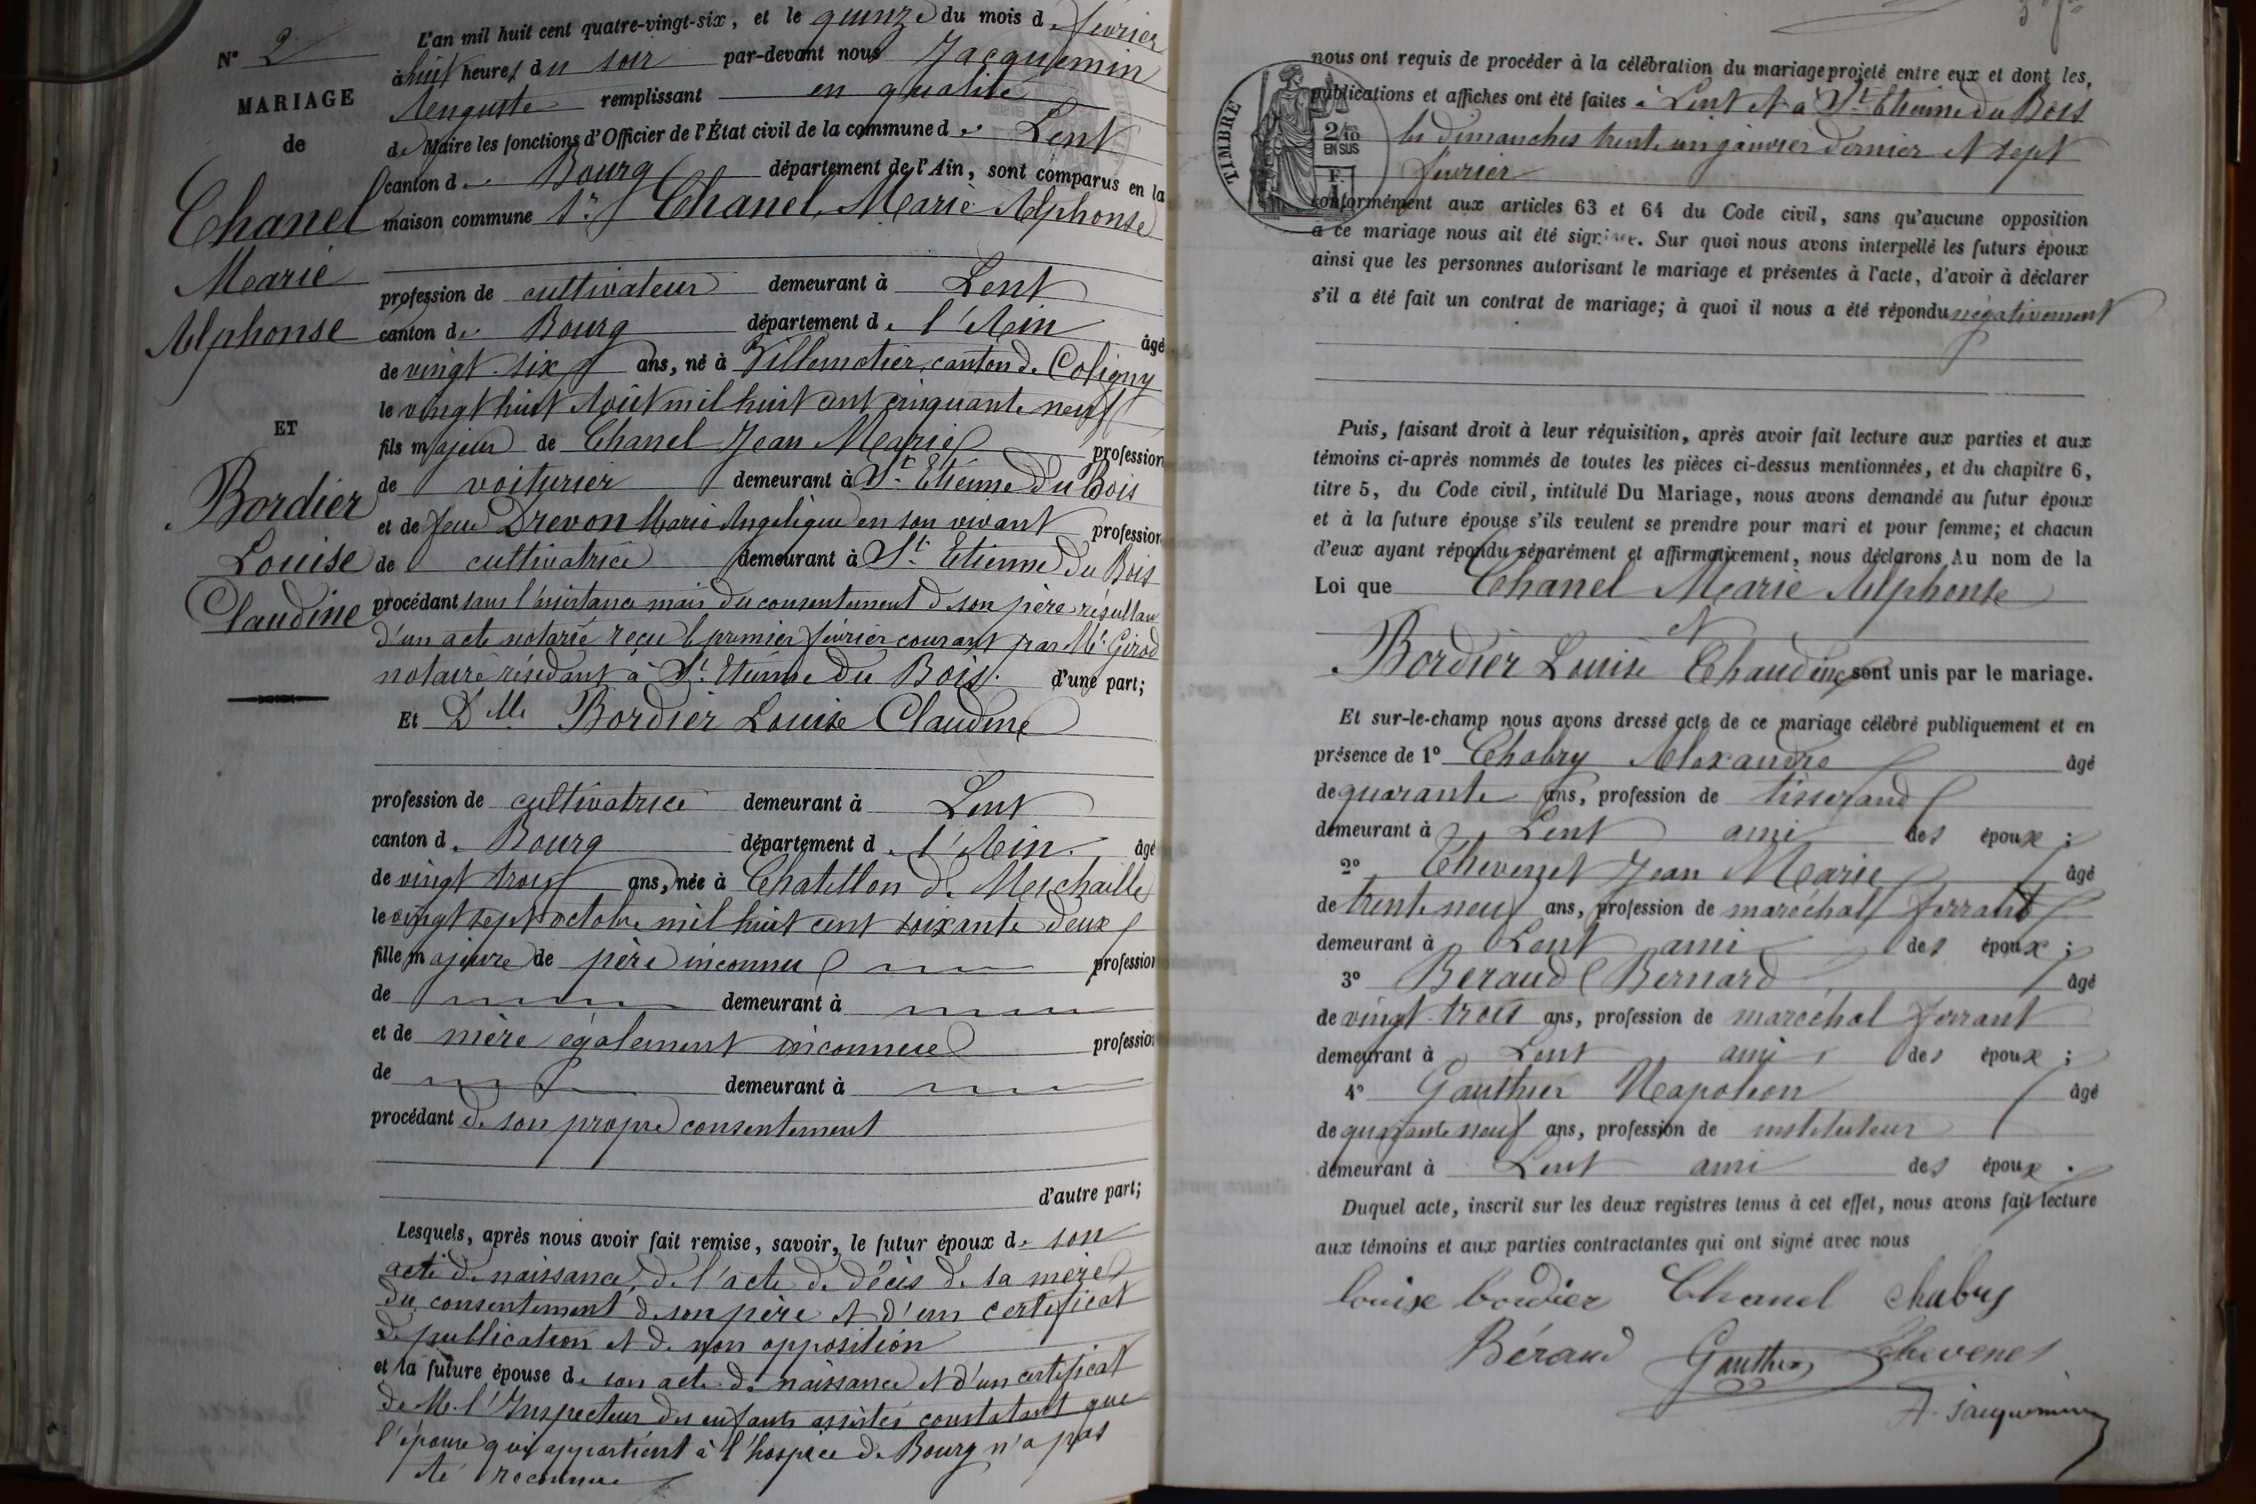 N° 2
MARIAGE
de
Chanel
Marie
Alphonse
ET
Bordier
Louise
Claudine
L'an mil huit cent quatre-vingt-six, et le quinze du mois de février
à huit heures du soir par-devant nous Jacquemin
Auguste remplissant en qualité
de Maire les fonctions d'Officier de l'État civil de la commune de Lent
canton de Bourg département de l'Ain, sont comparus en la
maison commune 1° Chanel Marie Alphonse
profession de cultivateur demeurant à Lent
canton de Bourg département de l'Ain âgé
de vingt-six ans, né à Villemotier, canton de Coligny
le vingt huit Août mil huit cent cinquante neuf
fils majeur de Chanel Jean Marie profession
de voiturier demeurant à St Etienne du Bois
et de feue Drevon Marie Angélique en son vivant profession
de cultivatrice demeurant à St Etienne du Bois
procédant sans l'assistance mais du consentement de son père résultant
d'un acte notarié reçu le premier février courant par Me Girod
notaire résidant à St Etienne du Bois. d'une part;
Et Dlle Bordier Louise Claudine
profession de cultivatrice demeurant à Lent
canton de Bourg département de l'Ain. âgé
de vingt trois ans, née à Chatillon de Michaille
le vingt sept octobre mil huit cent soixante deux
fille majeure de père inconnu profession
de demeurant à
et de mère également inconnue profession
de demeurant à
procédant de son propre consentement
d'autre part;
Lesquels, après nous avoir fait remise, savoir, le futur époux de son
acte de naissance, de l'acte de décès de sa mère
du consentement de son père et d'un certificat
de publication et de non opposition
et la future épouse de son acte de naissance et d'un certificat
de M. l'Inspecteur des enfants assistés constatant que
l'épouse qui appartient à l'hospice de Bourg n'a pas
été reconnue
nous ont requis de procéder à la célébration du mariage projeté entre eux et dont les
publications et affiches ont été faites à Lent et à St Etienne du Bois
les dimanches trente un janvier dernier et sept
février
TIMBRE
2/10
EN SUS
conformément aux articles 63 et 64 du Code civil, sans qu'aucune opposition
à ce mariage nous ait été signifiée. Sur quoi nous avons interpellé les futurs époux
ainsi que les personnes autorisant le mariage et présentes à l'acte, d'avoir à déclarer
s'il a été fait un contrat de mariage; à quoi il nous a été répondu négativement
Puis, faisant droit à leur réquisition, après avoir fait lecture aux parties et aux
témoins ci-après nommés de toutes les pièces ci-dessus mentionnées, et du chapitre 6,
titre 5, du Code civil, intitulé Du Mariage, nous avons demandé au futur époux
et à la future épouse s'ils veulent se prendre pour mari et pour femme; et chacun
d'eux ayant répondu séparément et affirmativement, nous déclarons Au nom de la
Loi que Chanel Marie Alphonse
et
Bordier Louise Chaudine sont unis par le mariage.
Et sur-le-champ nous avons dressé acte de ce mariage célébré publiquement et en
présence de 1° Chabry Alexandre âgé
de quarante ans, profession de tisserand
demeurant à Lent ami des époux;
2° Thevenet Jean Marie âgé
de trente neuf ans, profession de maréchal ferrant
demeurant à Lent ami des époux;
3° Beraud Bernard âgé
de vingt-trois ans, profession de maréchal ferrant
demeurant à Lent ami des époux;
4° Gauthier Napoléon âgé
de quarante neuf ans, profession de instituteur
demeurant à Lent ami des époux.
Duquel acte, inscrit sur les deux registres tenus à cet effet, nous avons fait lecture
aux témoins et aux parties contractantes qui ont signé avec nous
louise bordier Chanel Chabry
Béraud Gauthier Thevenet
A. Jacquemin